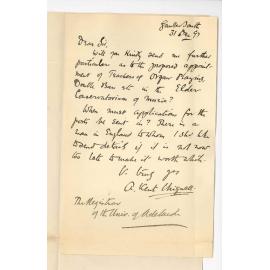 Gawler South
31 Dec 97
Dear Sir,
Will you kindly send me further
particulars as to the proposed appoint-
ment of Teachers of Organ Playing,
Double Bass etc in the Elder
Conservatorium of Music?
When must applications for the
posts be sent in? There is a
man in England to whom I shd like
to send details if it is not now
too late to make it worth while.
V. truly yrs
A. Kent Chignell
The Registrar
of the Univ. of Adelaide